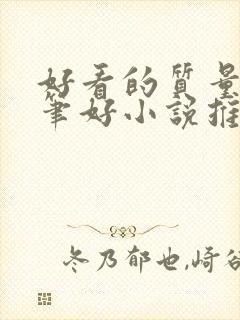 好看的质量
笔好小说推
冬乃郁也,崎谷